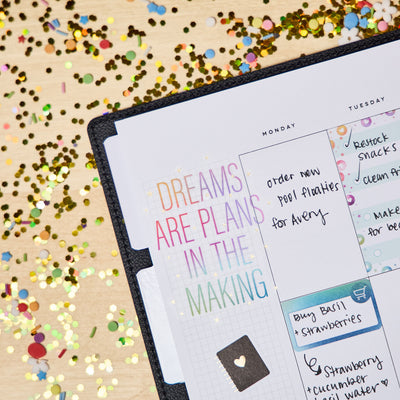 MONDAY
TUESDAY
DREAMS
ARE PLANS
IN THE
MAKING
order new
pool floaties
for Avery
RESTOCK
SNACKS
CLEAN
MAKE
for
BUY BASIL
+ STRAWBERRIES
STRAWBERRY
+ CUCUMBER
basil water